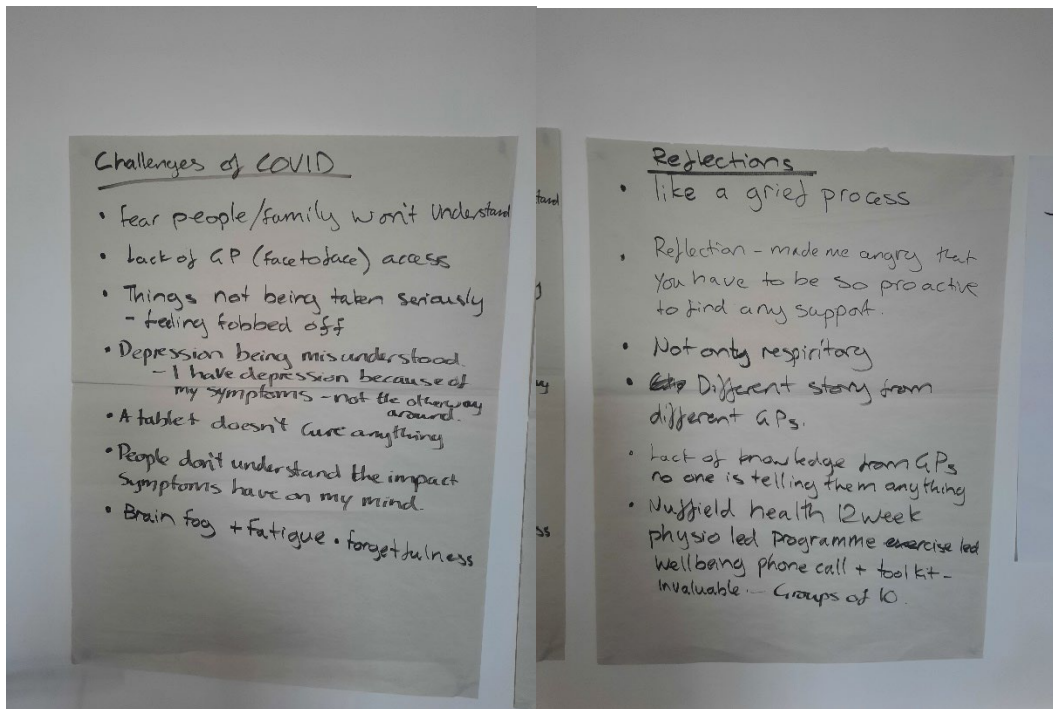 Challenges of COVID
• fear people/family won't understand
• Lack of GP (face to face) access
• Things not being taken seriously
- feeling fobbed off
• Depression being misunderstood.
- I have depression because of
my symptoms - not the other way
around.
• A tablet doesn't cure anything
• People don't understand the impact
symptoms have on my mind.
• Brain fog + fatigue • forgetfulness
Reflections
• like a grief process
• Reflection - made me angry that
you have to be so proactive
to find any support.
• Not only respiritory
• Different story from
different GPs.
• Lack of knowledge from GPs
no one is telling them anything
• Nuffield health 12 week
physio led programme exercise led
wellbeing phone call + toolkit -
invaluable - Groups of 10.